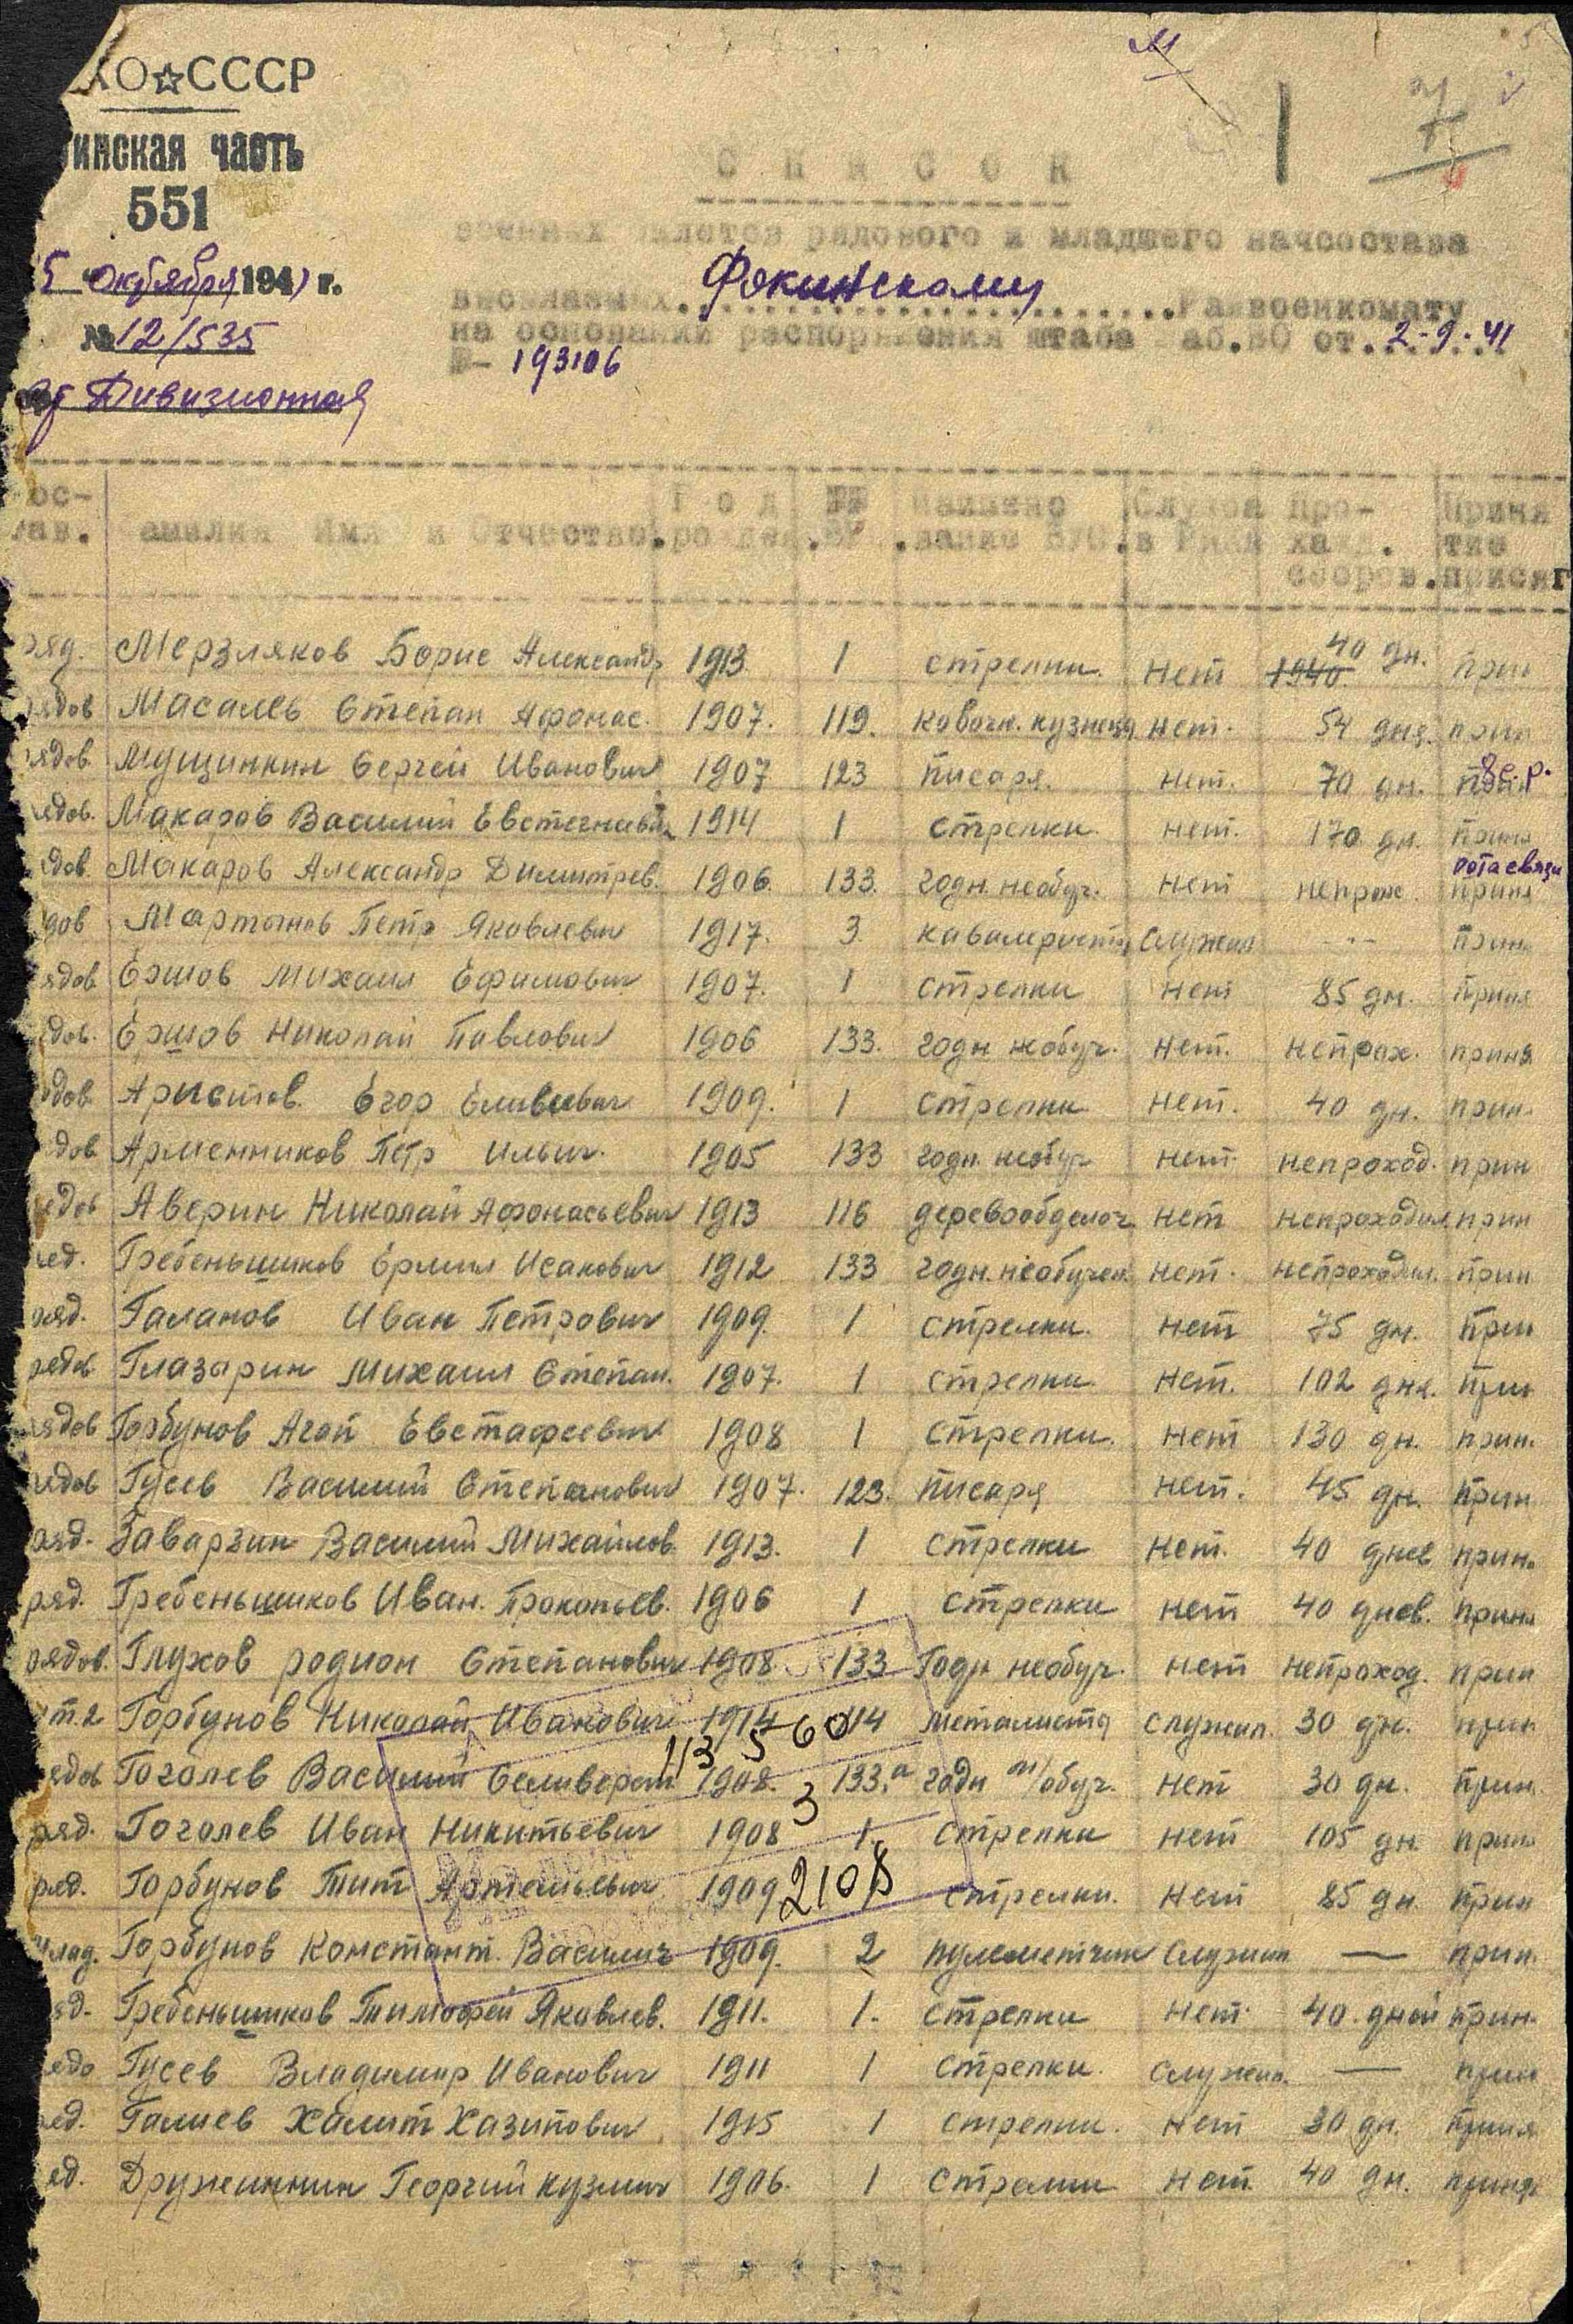 КО☆СССР
инская часть
551
5 октября 1941 г.
№ 12/535
Дивизионная
7
СПИСОК
военных билетов рядового и младшего начсостава
высланных Фокинскому Райвоенкомату
на основании распоряжения штаба аб.ВО от 2-9-41
№- 193106
ос- Год №№ Наимено Служба Про- Приня
тав. амилия Имя и Отчество. рожден. ВУС. вание ВУС. в РККА хожд. тие
сборов. присяг
40 дн.
ряд. Мерзляков Борис Александр 1913 1 стрелки. Нет 1940 прин
рядов Масалев Степан Афонас. 1907. 119. ковочн. кузнецы нет. 54 дня. прин
рядов Мущинкин Сергей Иванович 1907 123 писаря. нет. 70 дн.
ядов. Макаров Василий Евстегневич 1914 1 стрелки. нет. 170 дн. приня
рота связи
дов. Макаров Александр Димитрев. 1906. 133. годн. необуч. нет непрох. приня
дов Мартынов Петр Яковлевич 1917. 3. кавалеристы Служил --- прин
ядов Ершов Михаил Ефимович 1907. 1 стрелки нет 85 дн. приня
дов. Ершов Николай Павлович 1906 133. годн необуч. нет. непрох. приня
дов. Аристов Егор Еливевич 1909. 1 стрелки нет. 40 дн. прин.
дов Арменников Петр Ильич. 1905 133 годн. необуч нет. непроход. прин
ядов Аверин Николай Афонасьевич 1913 116 деревообделоч. нет непроходил прин
ед. Гребеньшиков Ермил Исакович 1912 133 годн. необучен. нет. непроходил. прин
ряд. Галанов Иван Петрович 1909. 1 стрелки. нет 75 дн. прин
рядов Глазырин Михаил Степан. 1907. 1 стрелки. нет. 102 дня. прин
рядов Горбунов Агап Евстафеевич 1908 1 стрелки. нет 130 дн. прин.
рядов Гусев Василий Степанович 1907. 123. писаря нет. 45 дн. прин
ряд. Гаварзин Василий Михайлов. 1913. 1 стрелки нет. 40 днев прин.
ряд. Гребеньшиков Иван. Прокопьев. 1906 1 стрелки нет 40 днев. прин
рядов. Глухов родион Степанович 1908. 133 Годн необуч. нет непроход. прин
т.2 Горбунов Николай Иванович 1914 114 металисты служил. 30 дн. прин
113560
ядов Гоголев Василий Селиверст. 1908. 133.а годн м/обуч. нет 30 дн. прин.
3
ряд. Гоголев Иван Никитьевич 1908 1. стрелки нет 105 дн. прин
ряд. Горбунов Тит Артемьевич 1909 2108 стрелки. нет 85 дн. прин
млад. Горбунов Констант. Василич 1909. 2 пулеметчик служил — прин.
яд. Гребеньшиков Тимофей Яковлев. 1911. 1. стрелки нет. 40. дней прин.
ядо Гусев Владимир Иванович 1911 1 стрелки. Служил. — прин
яд. Галиев Халит Хазипович 1915 1 стрелки. нет 30 дн. приня
яд. Дружиннин Георгий кузмич 1906. 1 стрелки нет. 40 дн. приня